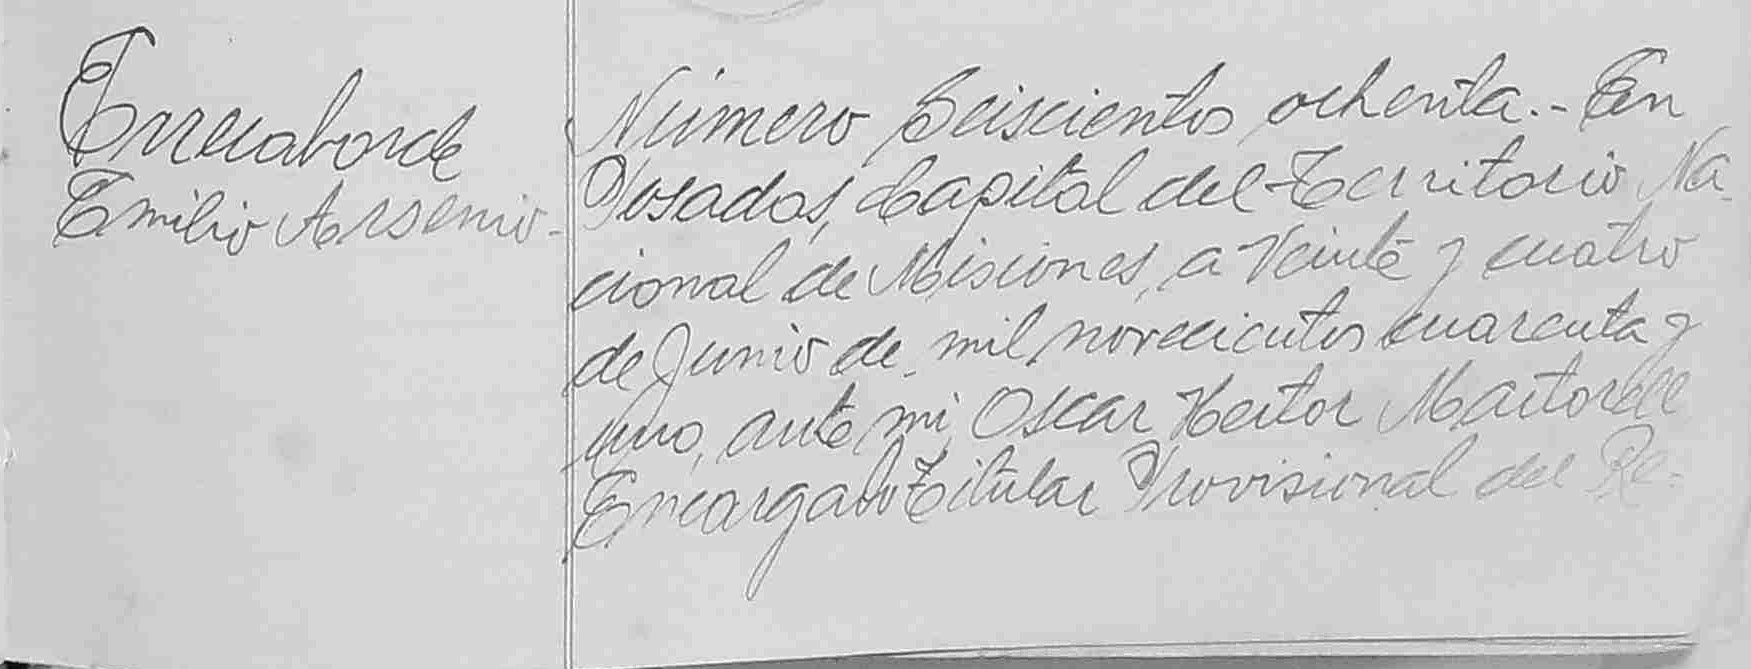 Errecaborde
Emilio Arsenio-
Número Seiscientos ochenta.- En
Posadas, Capital del Territorio Na-
cional de Misiones, a Veinte y cuatro
de Junio de mil novecientos cuarenta y
uno, ante mi, Oscar Hector Martorell
Encargado Titular Provisional del Re-